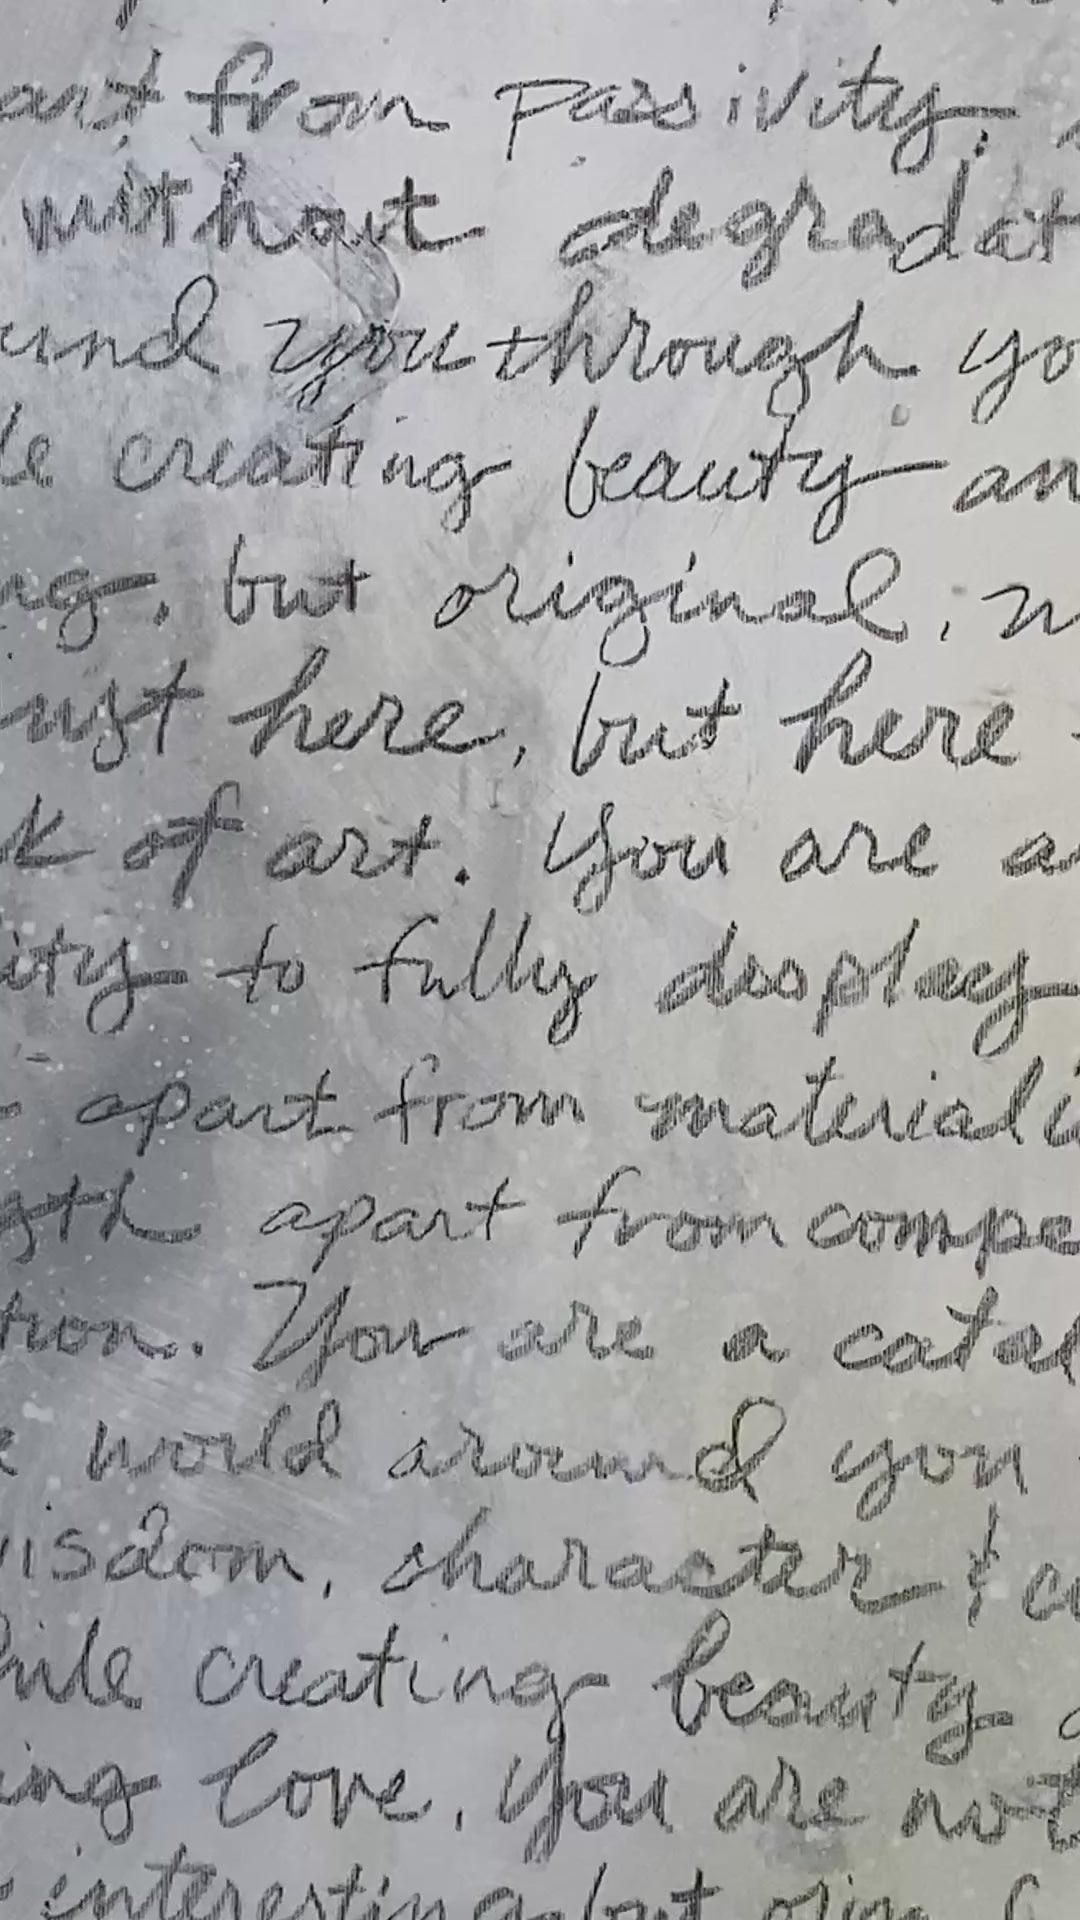 from passivity,
without degradat
und you through yo
le creating beauty an
ng, but original, n
ust here, but here
k of art. You are a
ity to fully display
apart from materiali
gth apart from compe
tion. You are a catal
world around you
isdom, character & c
hile creating beauty
ing love. You are not
interesting, but